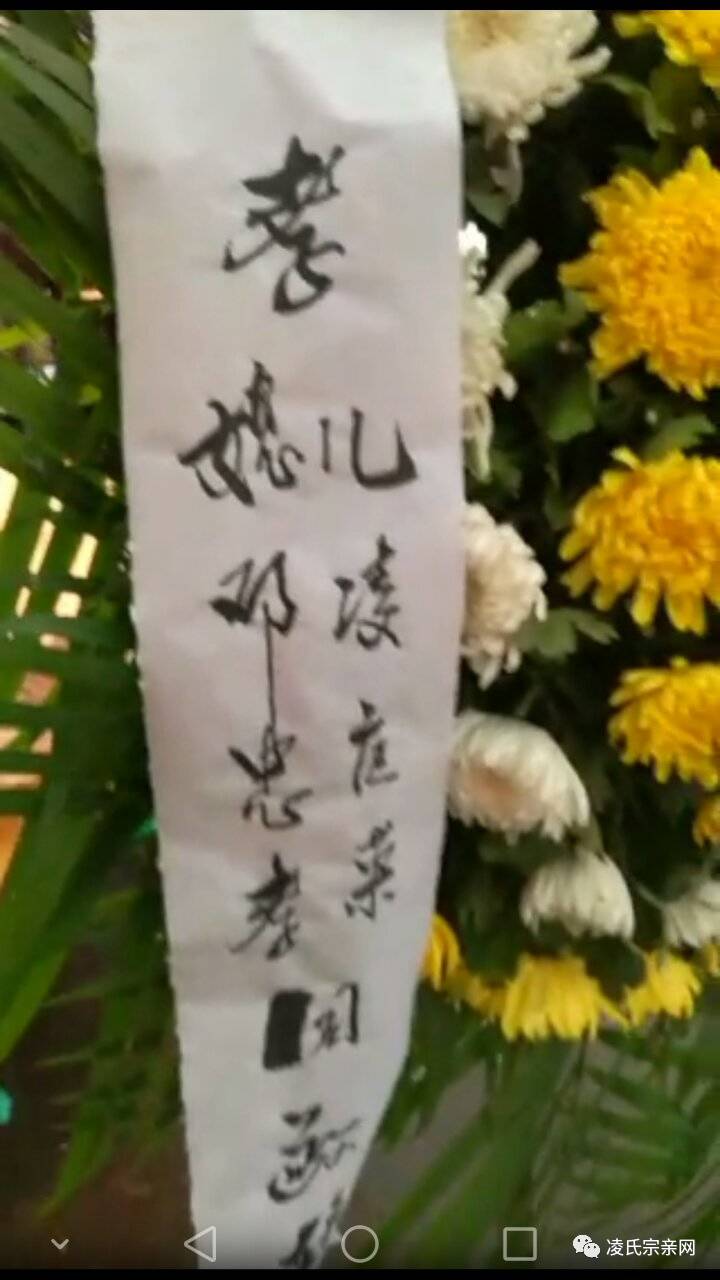 孝
儿凌庭
媳邓忠孝
同
凌氏宗亲网